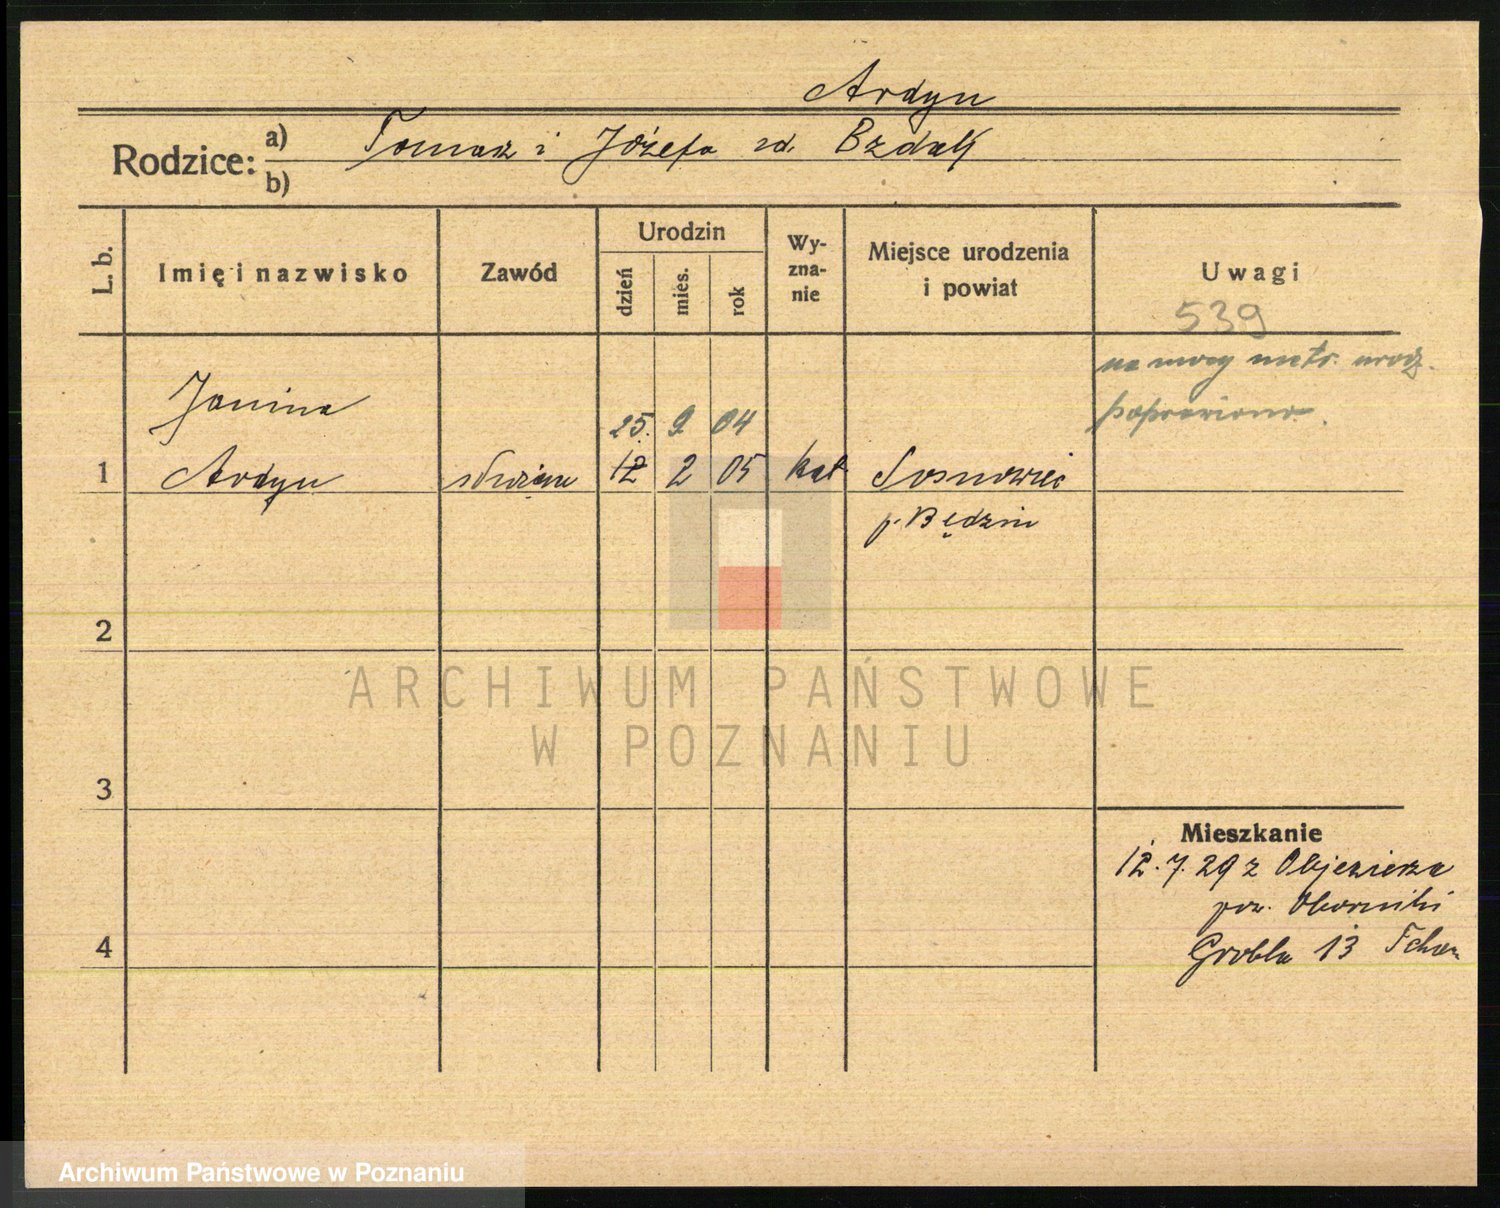 Ardyn
Rodzice: a) Tomasz i Józefa zd. Bzdak
b)
L. b. Imię i nazwisko Zawód Urodzin dzień mies. rok Wy-zna-nie Miejsce urodzenia i powiat Uwagi
539
na mocy metr. urodz.
poprawiono.
Janina
25. 9 04
1 Ardyn służąca 12 2 05 kat Sosnowiec
p. Będzin
2
ARCHIWUM PAŃSTWOWE
W POZNANIU
3
Mieszkanie
12.7.29 z Objezierza
pow. Oborniki
4 Grobla 13
Archiwum Państwowe w Poznaniu